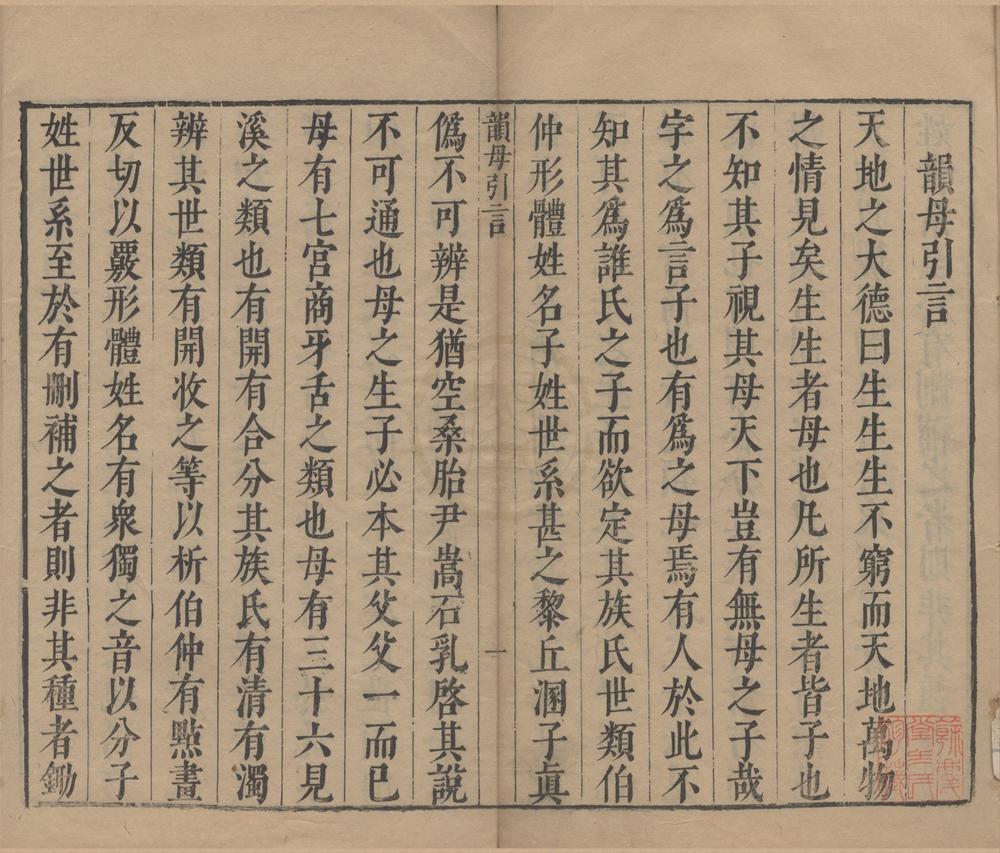 韻母引言
天地之大德曰生生生不窮而天地萬物
之情見矣生生者母也凡所生者皆子也
不知其子視其母天下豈有無母之子哉
字之爲言子也有爲之母焉有人於此不
知其爲誰氏之子而欲定其族氏世類伯
仲形體姓名子姓世系甚之黎丘溷子眞
韻母引言
一
僞不可辨是猶空桑胎尹嵩石乳啓其說
不可通也母之生子必本其父父一而已
母有七宮商牙舌之類也母有三十六見
溪之類也有開有合分其族氏有清有濁
辨其世類有開收之等以析伯仲有㸃畫
反切以覈形體姓名有衆獨之音以分子
姓世系至於有刪補之者則非其種者鋤